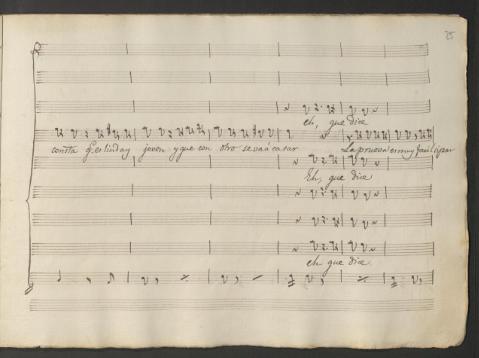 25
eh, que dice
consta q.e es linda y joven y que con otro se va a casar La prueva es muy facil
Eh, que dice
eh que dice